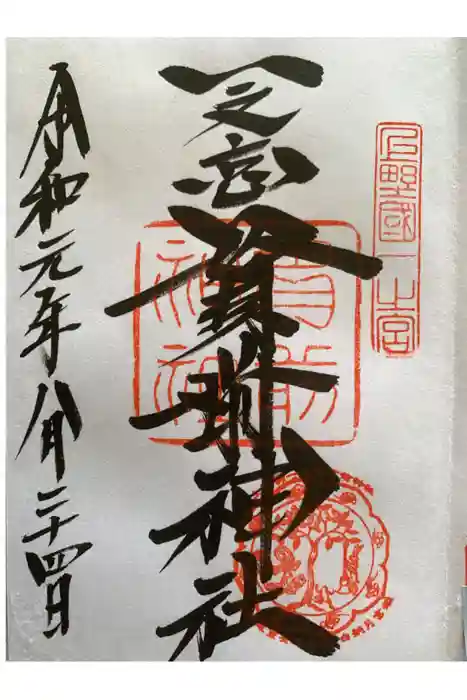 上野國一之宮
一之宮貫前神社
貫前
神社
令和元年八月二十四日